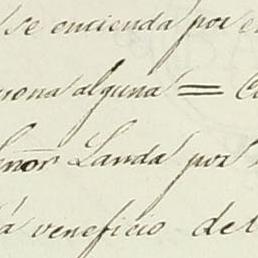 se entienda por e
uona alguna = C
eñor Landa por
á veneficio del